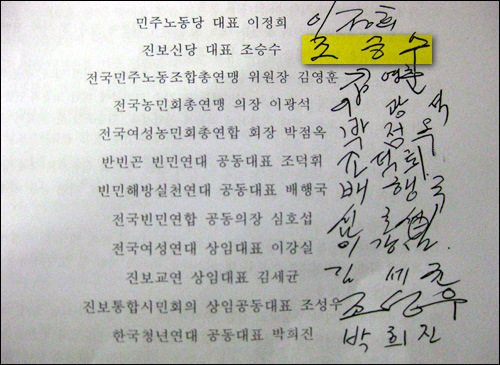 민주노동당 대표 이정희 이정희
진보신당 대표 조승수 조승수
전국민주노동조합총연맹 위원장 김영훈 김영훈
전국농민회총연맹 의장 이광석 이광석
전국여성농민회총연합 회장 박점옥 박점옥
반빈곤 빈민연대 공동대표 조덕휘 조덕휘
빈민해방실천연대 공동대표 배행국 배행국
전국빈민연합 공동의장 심호섭 심호섭
전국여성연대 상임대표 이강실 이강실
진보교연 상임대표 김세균 김세균
진보통합시민회의 상임공동대표 조성우 조성우
한국청년연대 공동대표 박희진 박희진